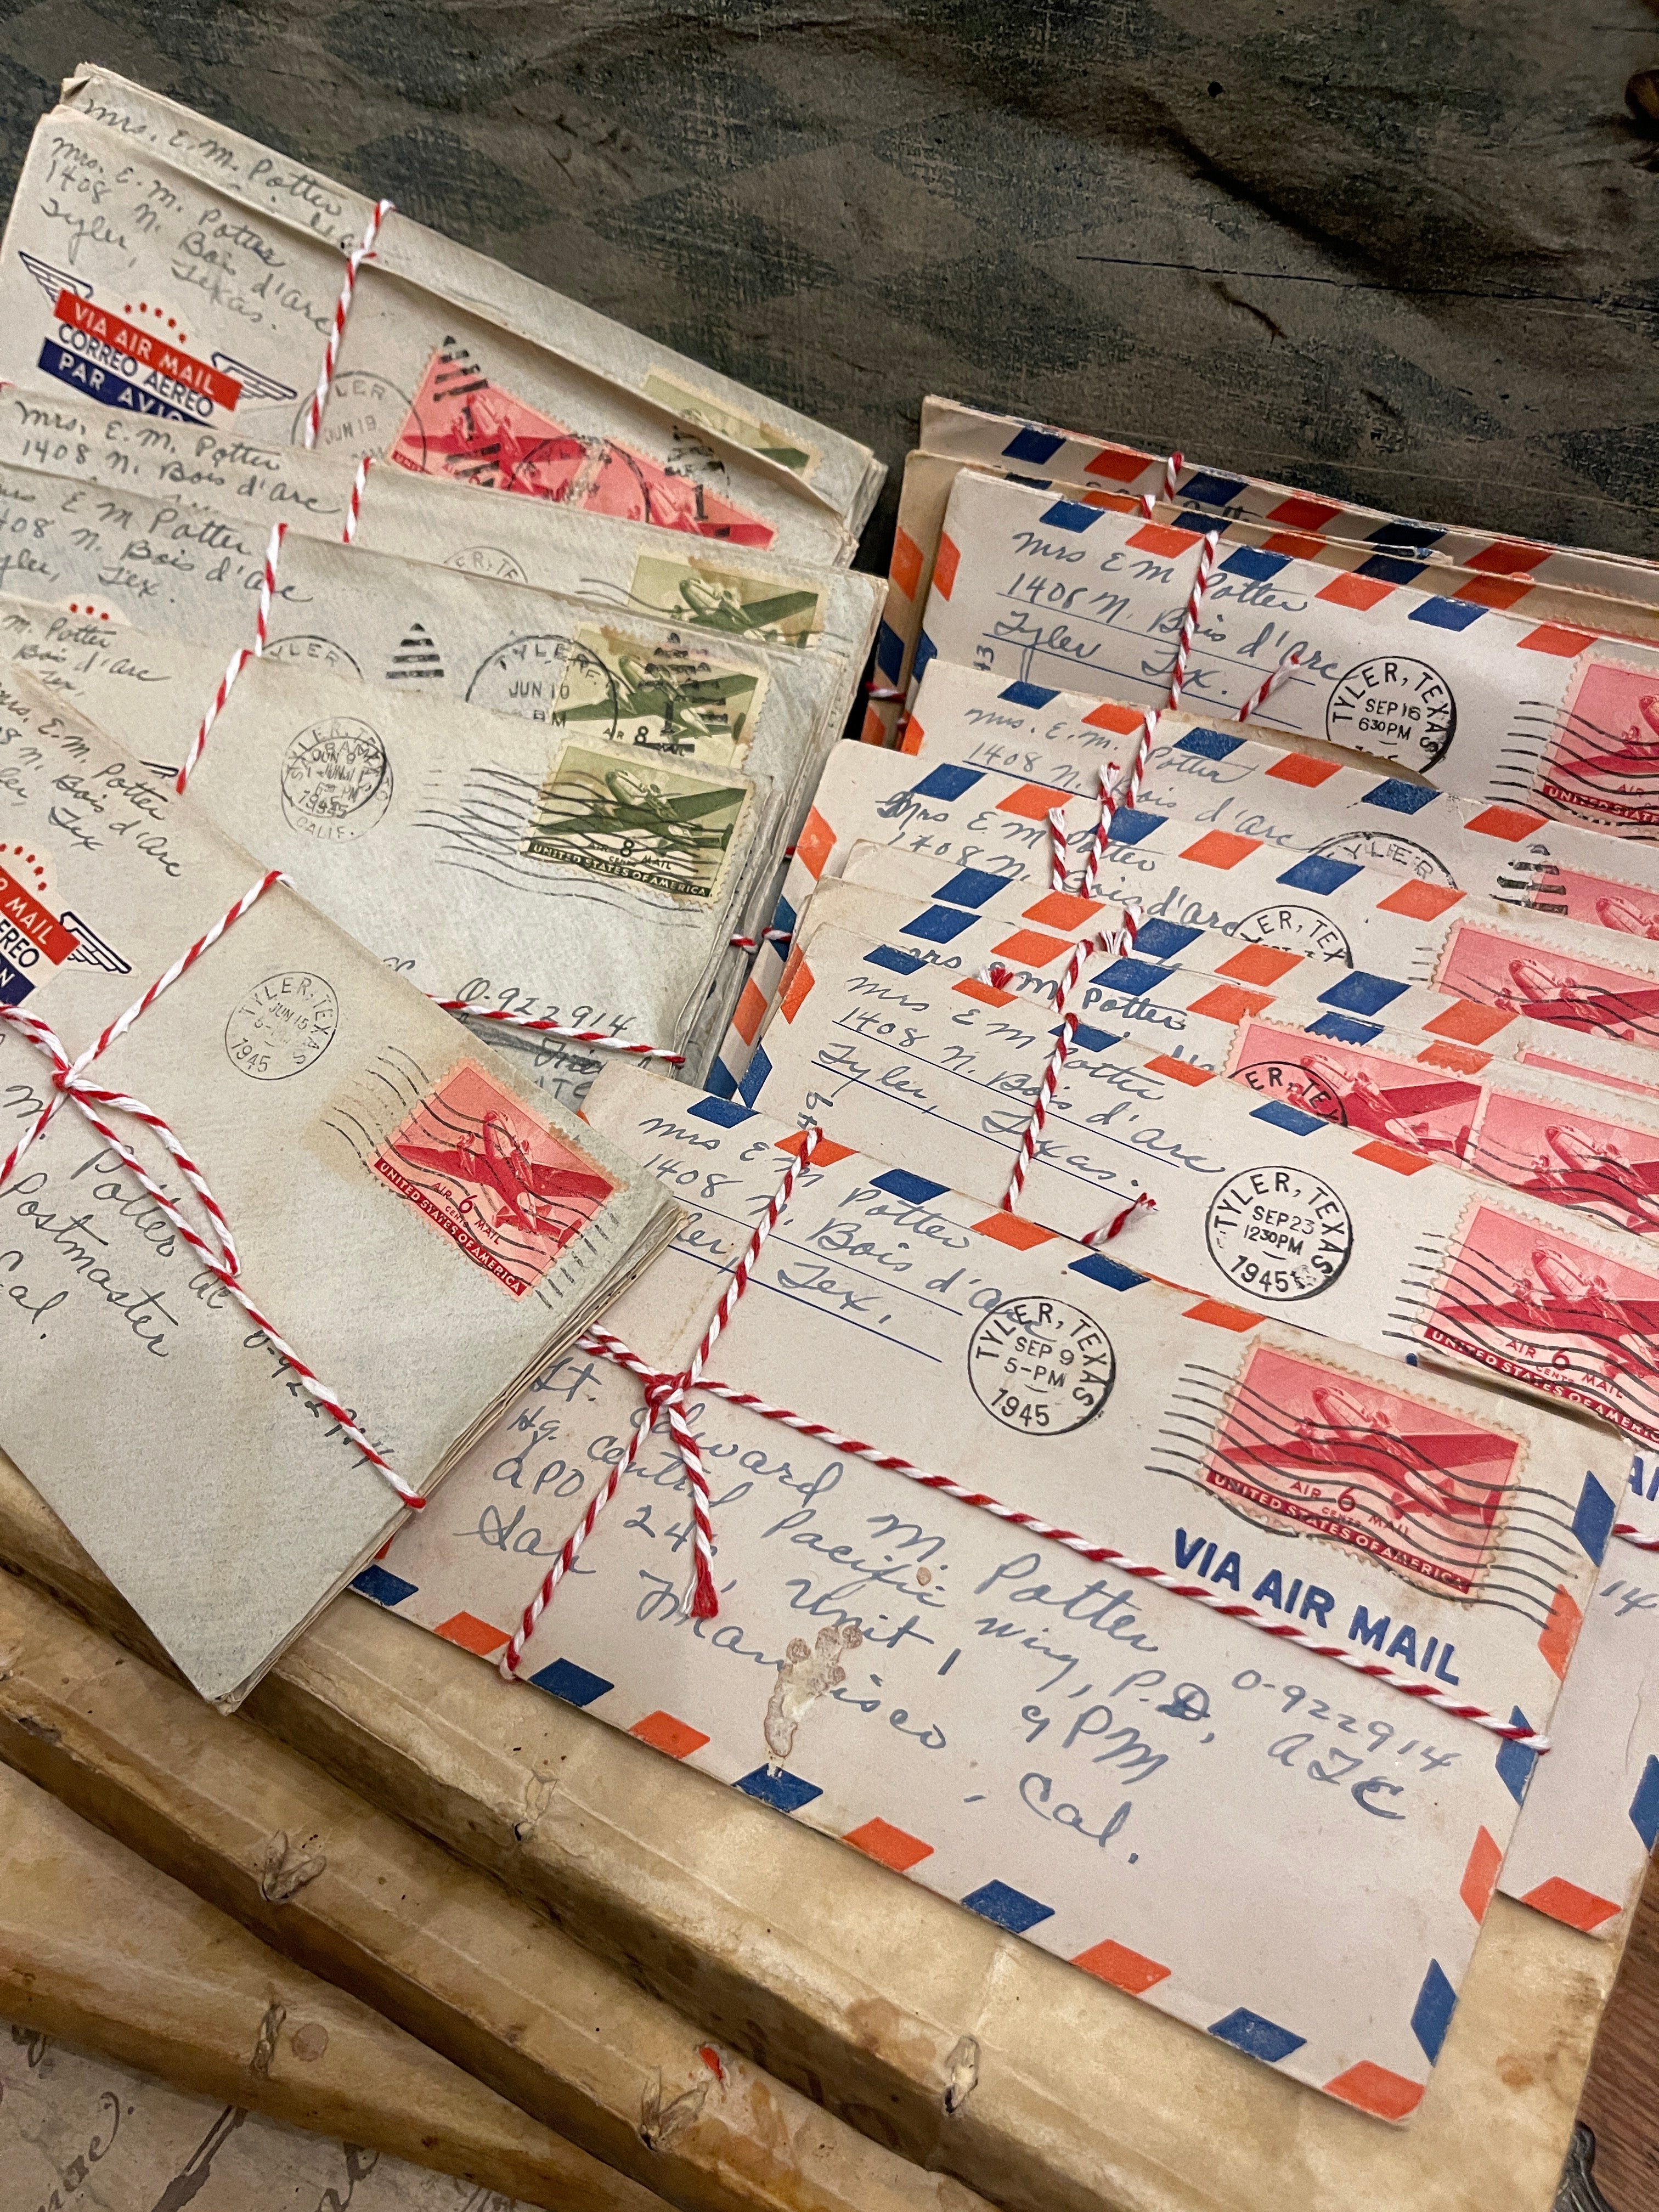 Mrs. E. M. Potter
Mrs. E. M. Potter
1408 N. Bois d'Arc
Tyler, Texas.
VIA AIR MAIL
CORREO AEREO
PAR AVIO
LER
JUN 19
Mrs. E. M. Potter
1408 N. Bois d'Arc
E M Potter
N. Bois d'Arc
Tex.
TYLER
JUN 10
AIR 8
M. Potter
Bois d'Arc
CALIF.
AIR 8 MAIL
CENTS
UNITED STATES OF AMERICA
0-922914
E. M. Potter
N. Bois d'Arc
Tex
MAIL
EREO
N
TYLER, TEXAS
JUN 15
1945
AIR 6 MAIL
CENTS
UNITED STATES OF AMERICA
M. Potter
Postmaster
Cal.
0-922914
Mrs E M Potter
1408 N. Bois d'Arc
Tyler Tex.
TYLER, TEXAS
SEP 16
630PM
AIR
UNITED STATES
Mrs. E. M. Potter
1408 N. Bois d'Arc
TYLER
Mrs E M Potter
1408 N. Bois d'Arc
ER, TEX
Mrs E M Potter
ER, TEX
Mrs E M Potter
1408 N. Bois d'Arc
Tyler, Texas.
TYLER, TEXAS
SEP 23
1230PM
1945
AIR 6 MAIL
CENTS
UNITED STATES OF AMERICA
Mrs E M Potter
1408 N. Bois d'Arc
ler, Tex,
TYLER, TEXAS
SEP 9
5-PM
1945
AIR 6 MAIL
CENTS
UNITED STATES OF AMERICA
VIA AIR MAIL
Lt. Edward M. Potter 0-922914
Hq. Central Pacific Wing, P.D, ATC
APO 24, Unit 1 9PM
San Francisco, Cal.
14